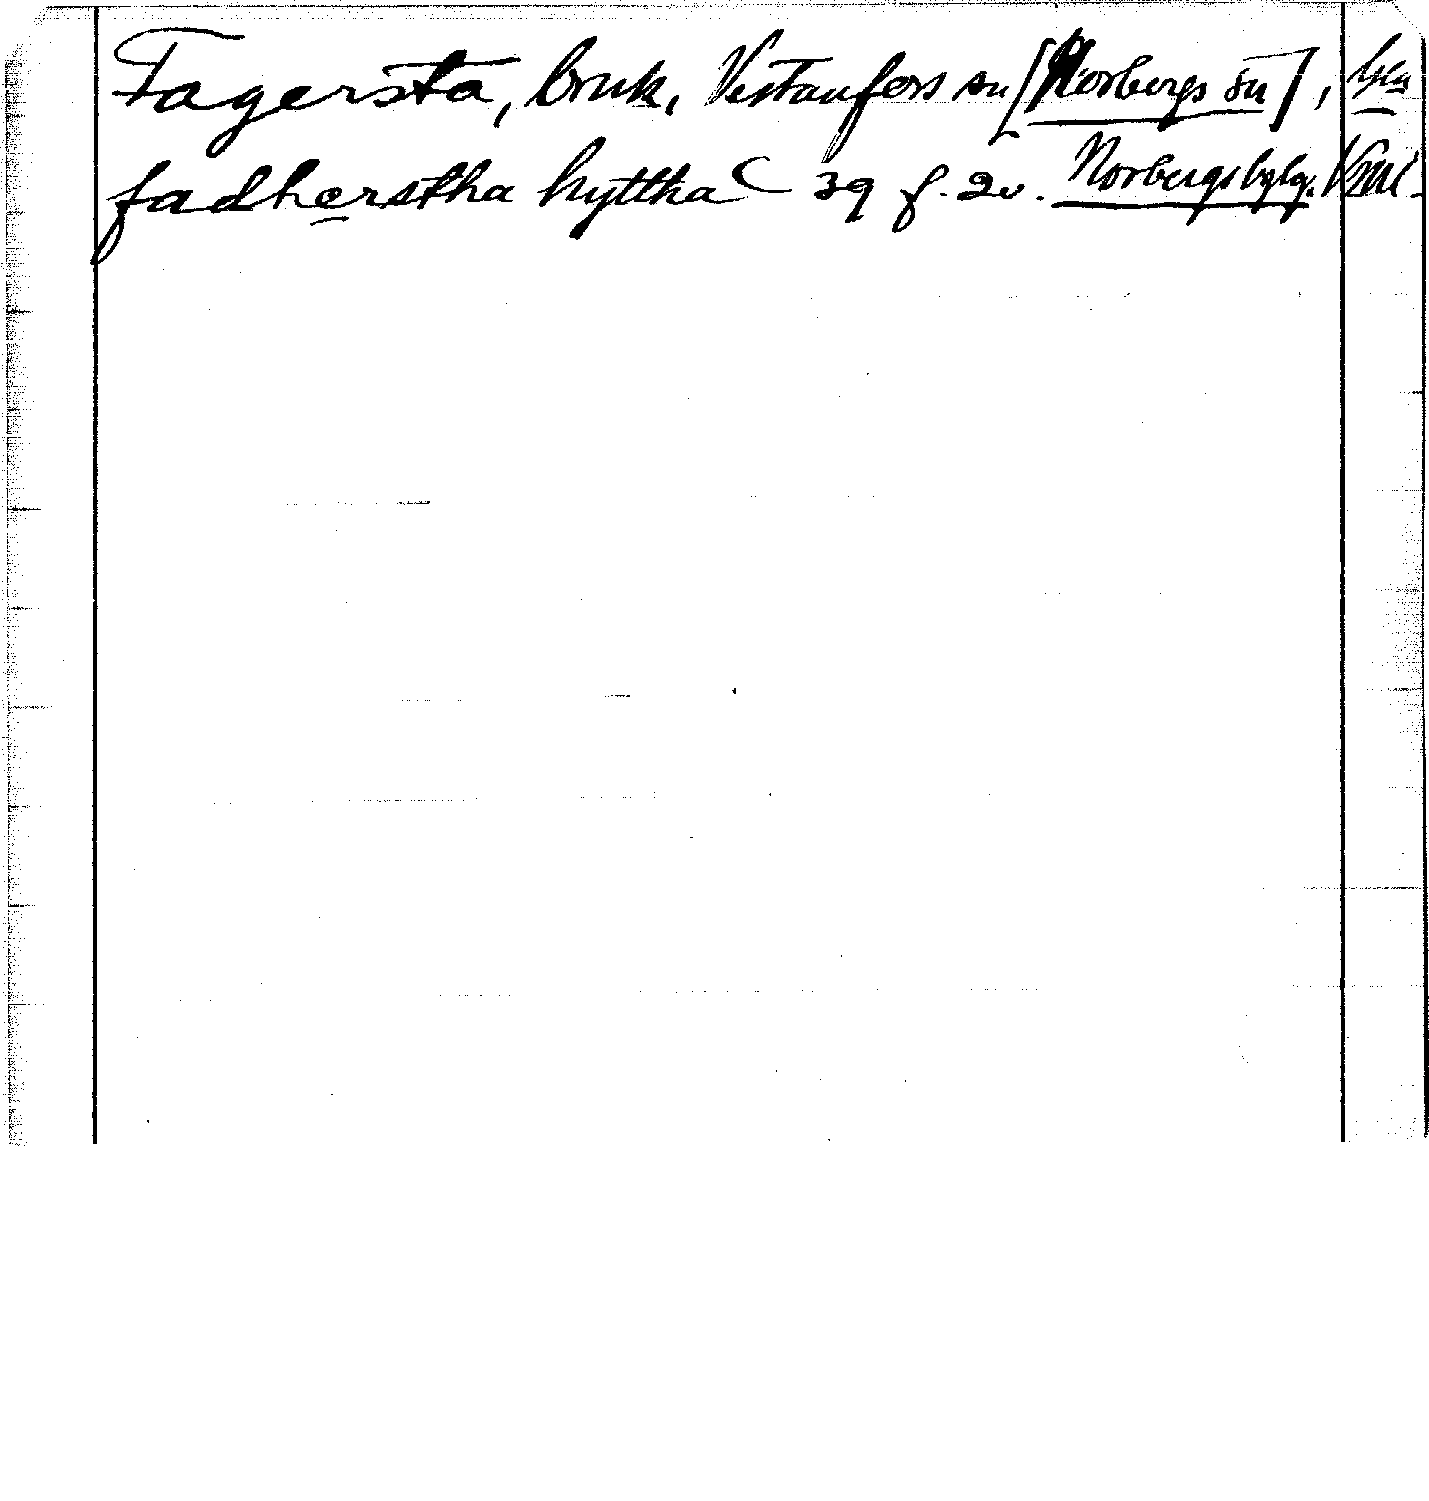 Fagersta, bruk, Vestanfors sn [Norbergs sn],
fadherstha hyttha 39 f. 2v. Norbergsbglg. Vsml.